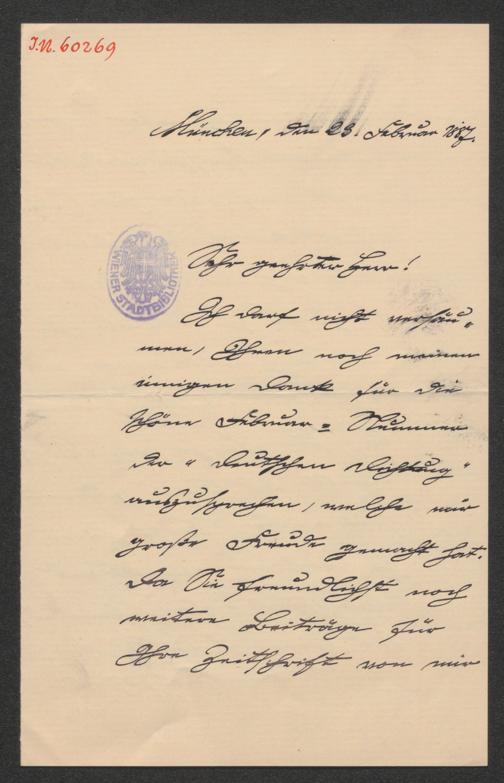 I.N. 60269
München, den 23. Februar 1887.
WIENER STADTBIBLIOTHEK
Sehr geehrter Herr!
Ich darf nicht versäu-
men, Ihnen noch meinen
innigen Dank für die
schöne Februar-Nummer
der "Deutschen Dichtung"
auszusprechen, welche mir
große Freude gemacht hat.
Da Sie freundlichst noch
weitere Beiträge für
Ihre Zeitschrift von mir